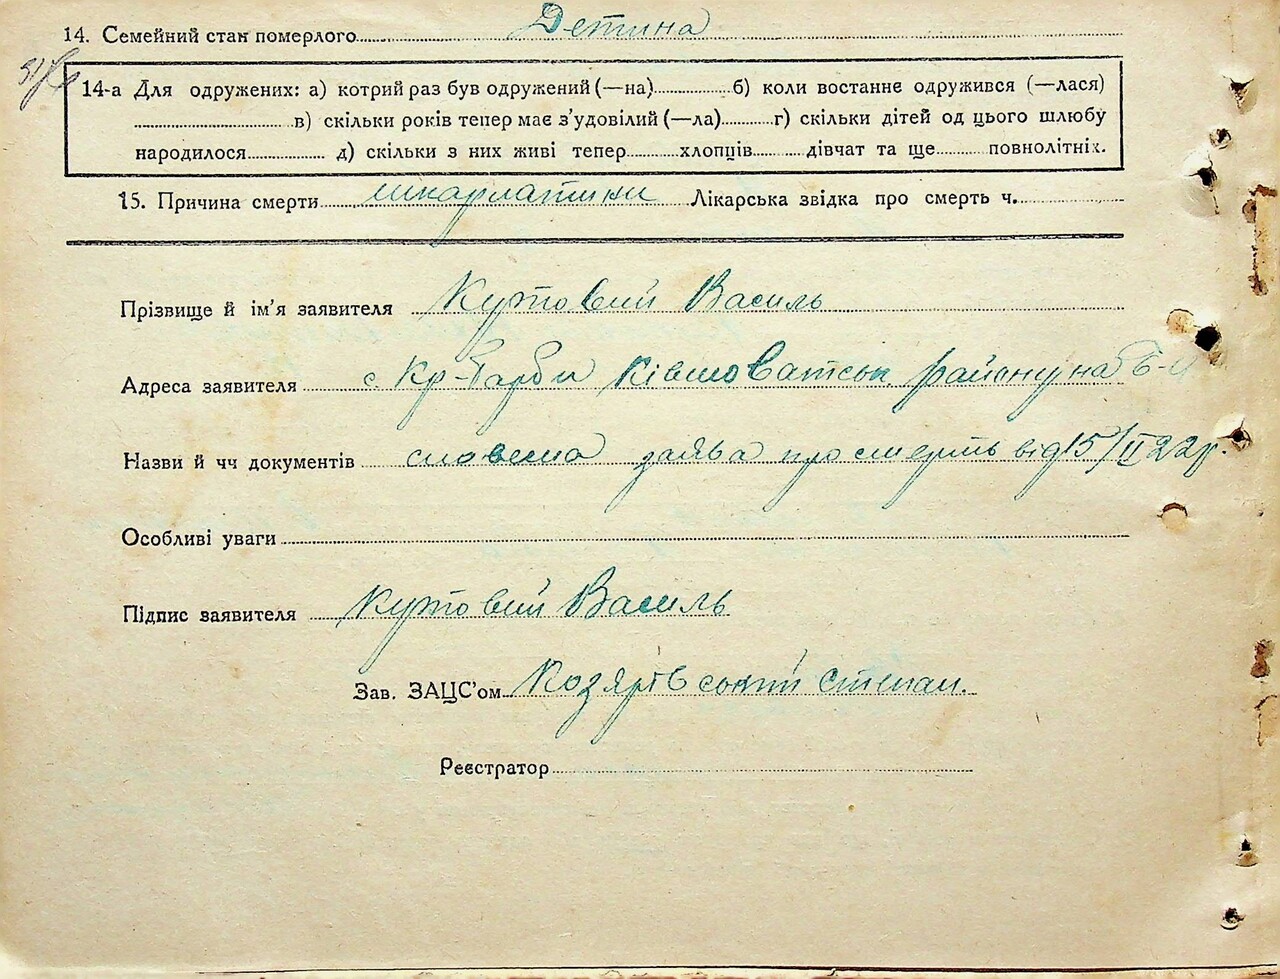 14. Семейний стан померлого Детина
14-а Для одружених: а) котрий раз був одружений (—на) б) коли востаннє одружився (—лася)
в) скільки років тепер має з'удовілий (—ла) г) скільки дітей од цього шлюбу
народилося д) скільки з них живі тепер хлопців дівчат та ще повнолітніх.
15. Причина смерти шкарлатини Лікарська звідка про смерть ч.
Прізвище й ім'я заявителя Кутовий Василь
Адреса заявителя с Кр-Гарби Ківшоватськ району на Б-Ц
Назви й чч документів словесна заява про смерть від 15/II 22р.
Особливі уваги
Підпис заявителя Кутовий Василь
Зав. ЗАЦС'ом Степан.
Реєстратор